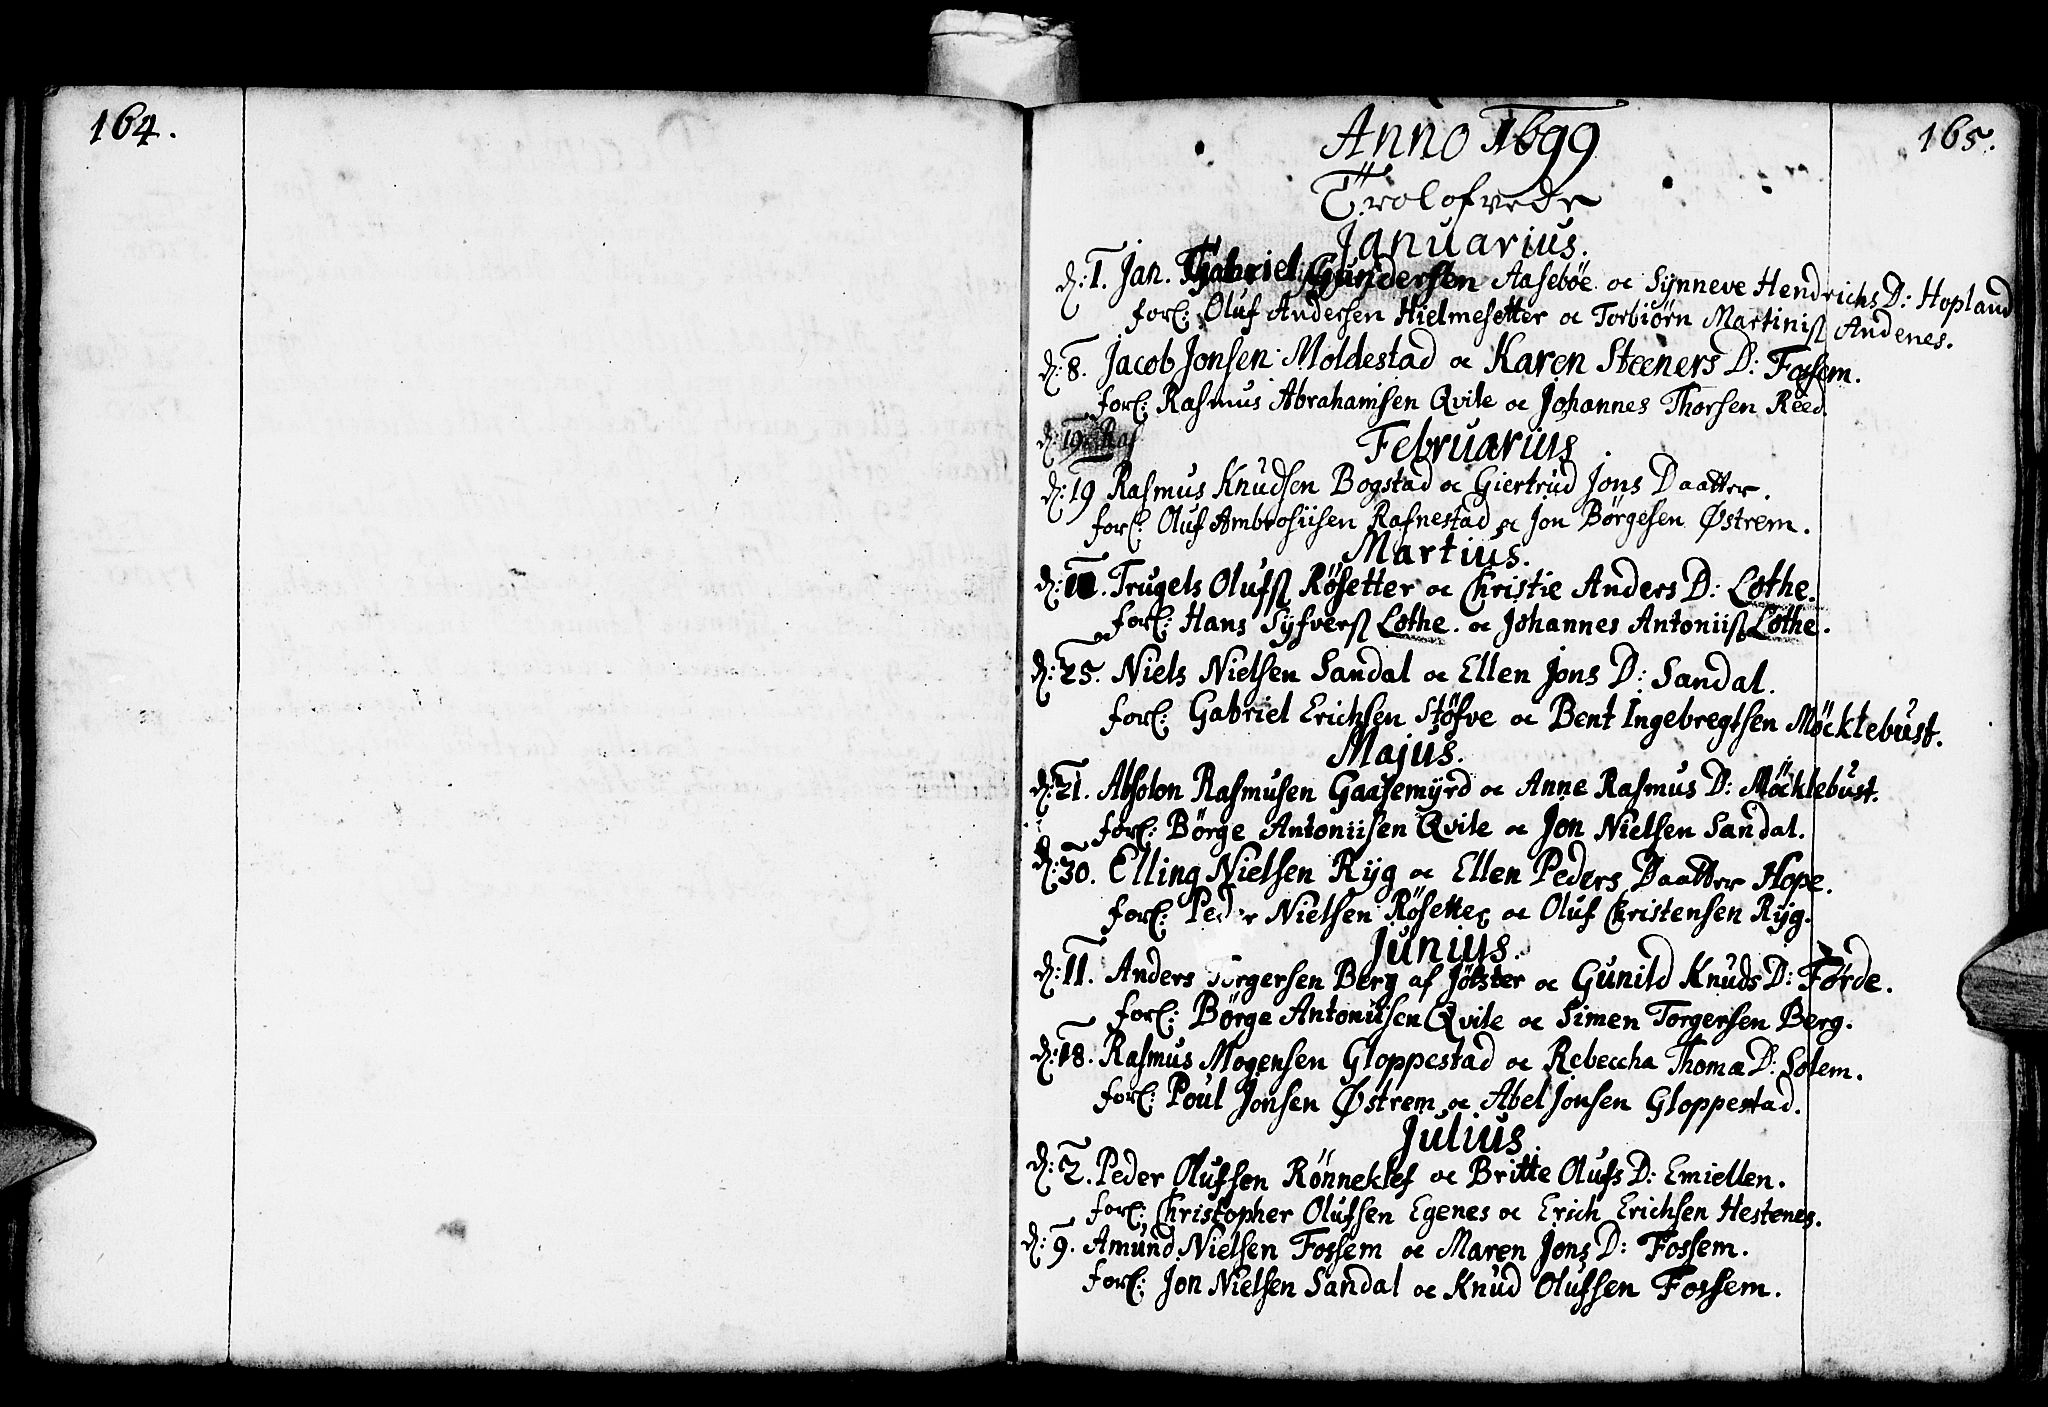 164.
165.
Anno 1699
Trolofvede
Januarius.
d: 1. Jan. Gabriel Gundersen Aasebøe oc Synneve Hendrichs D: Hopland
forl: Oluf Andersen Hielmesetter oc Torbiørn Martinis Andenes.
d: 8. Jacob Jonsen Moldestad oc Karen Steeners D: Fossem.
forl: Rasmus Abrahamsen Qvile oc Johannes Thorsen Reed.
d: 19. Ras
Februarius
d: 19 Rasmus Knudsen Bogstad oc Giertrud Jons Daatter.
forl: Oluf Ambrosiisen Rafnestad oc Jon Børgesen Østrem.
Martius.
d: Trugels Olufs Røsetter oc Christie Anders D: Lothe.
forl: Hans Syfvers Lothe. oc Johannes Antoniis Lothe.
d: 25. Niels Nielsen Sandal oc Ellen Jons D: Sandal.
forl: Gabriel Erichsen Støfve oc Bent Ingebregtsen Møcklebust.
Majus.
d: 21. Absolon Rasmusen Gaasemyrd oc Anne Rasmus D: Møcklebust.
forl: Børge Antoniisen Qvile oc Jon Nielsen Sandal.
d: 30. Elling Nielsen Ryg oc Ellen Peders Daatter Hope.
forl: Peder Nielsen Røsetter oc Oluf Christensen Ryg.
Junius.
d: 11. Anders Torgersen Berg af Jølster oc Gunild Knuds D: Førde.
forl: Børge Antoniisen Qvile oc Simen Torgersen Berg.
d: 18. Rasmus Mogensen Gloppestad oc Rebeccha Thomæ D: Solem.
forl: Poul Jonsen Østrem oc Abel Jonsen Gloppestad.
Julius.
d: 2. Peder Olufsen Rønneklef oc Britte Olufs D: Emiellen.
forl: Christopher Olufsen Egenes oc Erich Erichsen Hestenes.
d: 9. Amund Nielsen Fossem oc Maren Jons D: Fossem.
forl: Jon Nielsen Sandal oc Knud Olufsen Fossem.